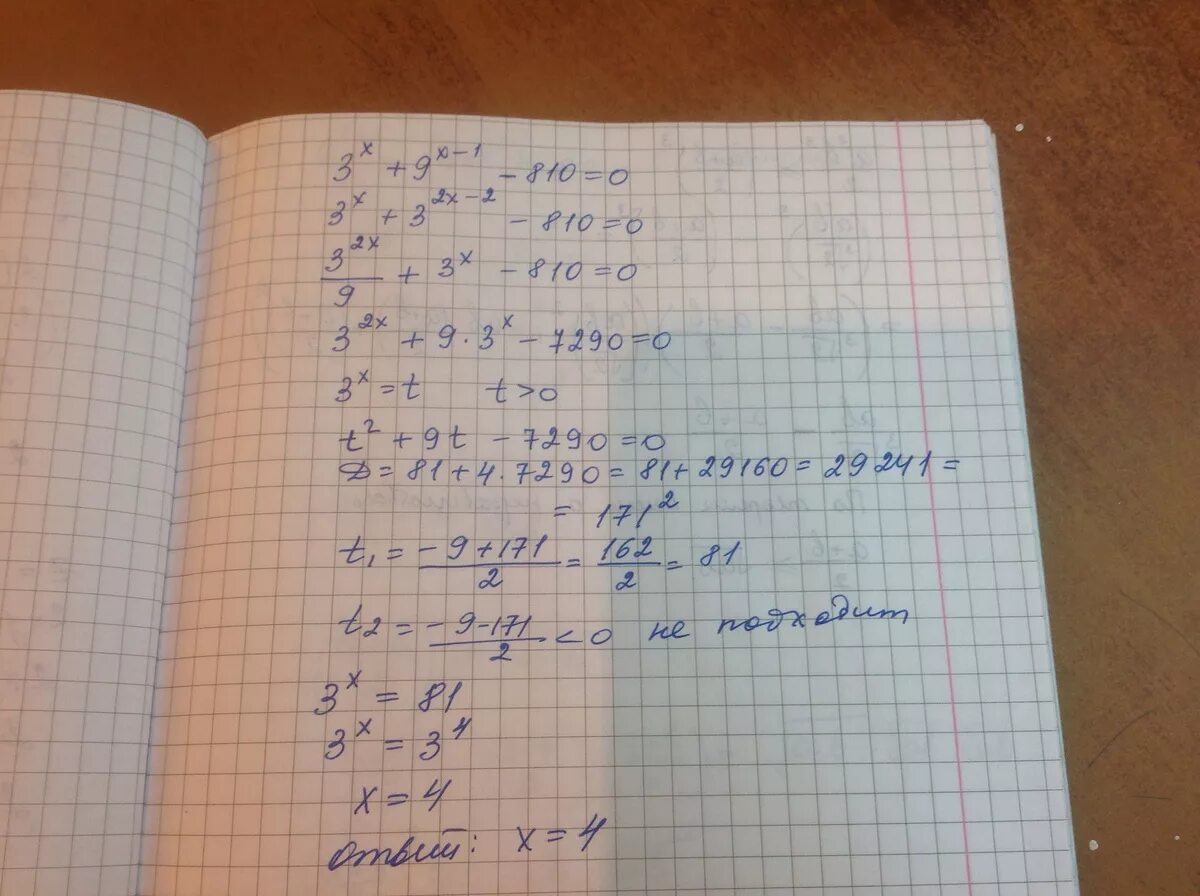 3^x + 9^(x-1) - 810 = 0
3^x + 3^(2x-2) - 810 = 0
3^(2x)/9 + 3^x - 810 = 0
3^(2x) + 9·3^x - 7290 = 0
3^x = t t > 0
t² + 9t - 7290 = 0
D = 81 + 4·7290 = 81 + 29160 = 29241 =
= 171²
t₁ = (-9+171)/2 = 162/2 = 81
t₂ = (-9-171)/2 < 0 не подходит
3^x = 81
3^x = 3^4
x = 4
ответ: x = 4